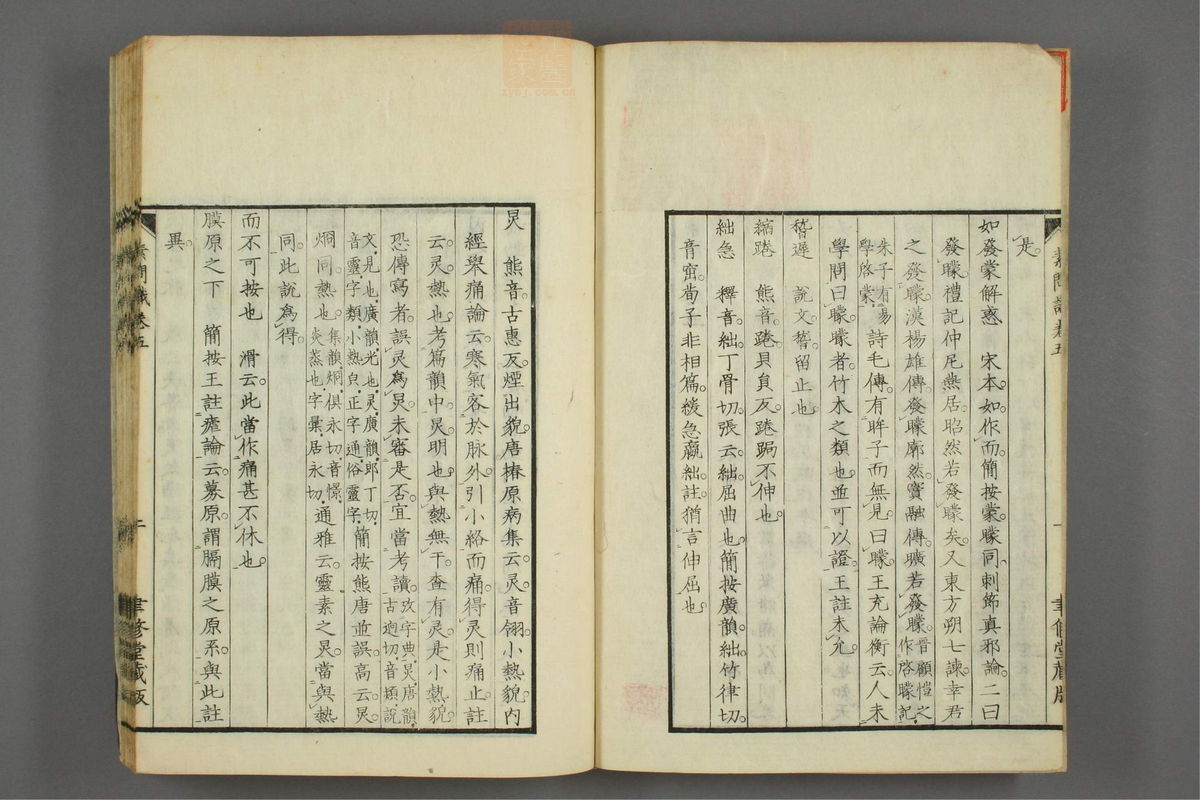 是
如發蒙解惑　宋本如作而簡按蒙矇同刺節真邪論二曰
發矇禮記仲尼燕居昭然若發矇矣又東方朔七諫幸君
之發矇漢楊雄傳發矇廓然竇融傳曠若發矇晉顧愷之作啓矇記
朱子有易學啓蒙詩毛傳有眸子而無見曰矇王充論衡云人未
學問曰矇矇者竹木之類也並可以證王註未允
稽遲　說文稽留止也
縮踡　熊音踡具負反踡跼不伸也
絀急　釋音絀丁骨切張云絀屈曲也簡按廣韻絀竹律切
音窋荀子非相篇緩急嬴絀註猶言伸屈也
素問識卷五
一
聿修堂藏版
炅　熊音古惠反煙出貌唐椿原病集云炅音翎小熱貌內
經舉痛論云寒氣客於脉外引小絡而痛得炅則痛止註
云炅熱也考篇韻中炅明也與熱無干查有灵是小熱貌
恐傳寫者誤灵為炅未審是否宜當考讀攷字典炅唐韻古迥切音熲說
文見也廣韻光也灵廣韻郎丁切音靈字類小熱皃正字通俗靈字簡按熊唐並誤高云炅
烱同熱也集韻烱俱永切音憬炎蒸也字彙居永切通雅云靈素之炅當與熱
同此說為得
而不可按也　滑云此當作痛甚不休也
膜原之下　簡按王註瘧論云募原謂膈膜之原系與此註
異
素問識卷五
二
聿修堂藏版